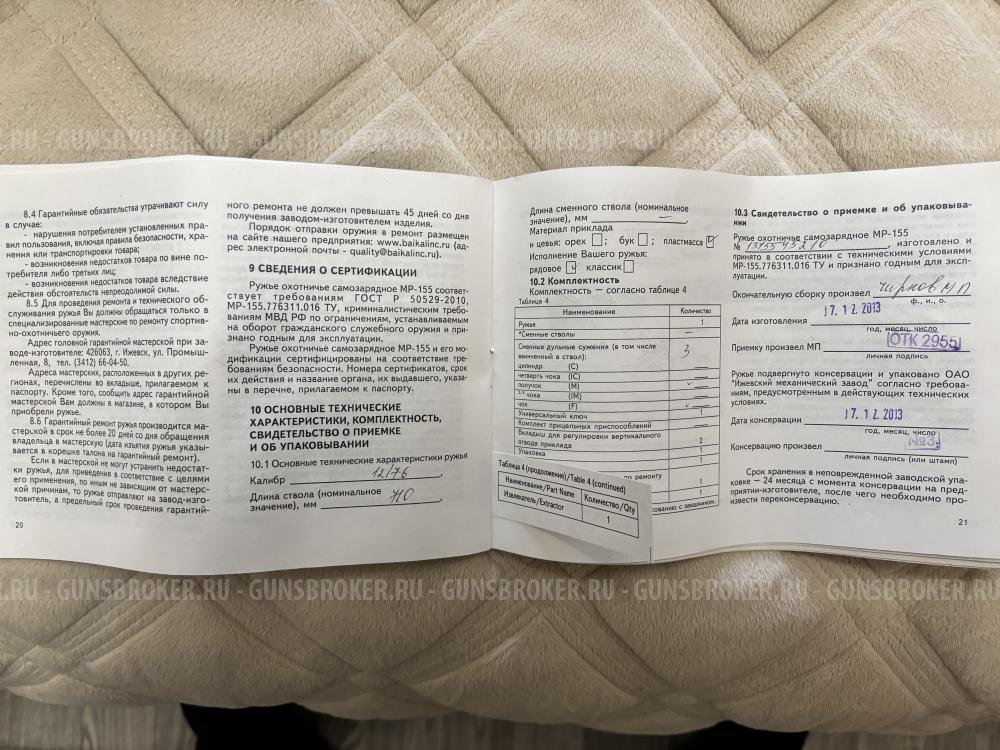 .RU - GUNSBROKER.RU - GUNSBROKER.RU - GUNSBROKER.RU - GUNSBROKER.RU - GUNSBROKER.RU
8.4 Гарантийные обязательства утрачивают силу
в случае:
- нарушения потребителем установленных пра-
вил пользования, включая правила безопасности, хра-
нения или транспортировки товара;
- возникновения недостатков товара по вине по-
требителя либо третьих лиц;
- возникновения недостатков товара вследствие
действия обстоятельств непреодолимой силы.
8.5 Для проведения ремонта и технического об-
служивания ружья Вы должны обращаться только в
специализированные мастерские по ремонту спортив-
но-охотничьего оружия.
Адрес головной гарантийной мастерской при за-
воде-изготовителе: 426063, г. Ижевск, ул. Промыш-
ленная, 8, тел. (3412) 66-04-50.
Адреса мастерских, расположенных в других ре-
гионах, перечислены во вкладыше, прилагаемом к
паспорту. Кроме того, сообщить адрес гарантийной
мастерской Вам должны в магазине, в котором Вы
приобрели ружье.
8.6 Гарантийный ремонт ружья производится ма-
стерской в срок не более 20 дней со дня обращения
владельца в мастерскую (дата изъятия ружья указы-
вается в корешке талона на гарантийный ремонт).
Если в мастерской не могут устранить недостат-
ки ружья, для приведения в соответствие с целями
его применения, по иным не зависящим от мастерс-
кой причинам, то ружье отправляют на завод-изго-
товитель, а предельный срок проведения гарантий-
20
ного ремонта не должен превышать 45 дней со дня
получения заводом-изготовителем изделия.
Порядок отправки оружия в ремонт размещен
на сайте нашего предприятия: www.baikalinc.ru (ад-
рес электронной почты - quality@baikalinc.ru).
9 СВЕДЕНИЯ О СЕРТИФИКАЦИИ
Ружье охотничье самозарядное МР-155 соответ-
ствует требованиям ГОСТ Р 50529-2010,
МР-155.776311.016 ТУ, криминалистическим требо-
ваниям МВД РФ по ограничениям, устанавливаемым
на оборот гражданского служебного оружия и при-
знано годным для эксплуатации.
Ружье охотничье самозарядное МР-155 и его мо-
дификации сертифицированы на соответствие тре-
бованиям безопасности. Номера сертификатов, срок
их действия и название органа, их выдавшего, указа-
ны в перечне, прилагаемом к паспорту.
10 ОСНОВНЫЕ ТЕХНИЧЕСКИЕ
ХАРАКТЕРИСТИКИ, КОМПЛЕКТНОСТЬ,
СВИДЕТЕЛЬСТВО О ПРИЕМКЕ
И ОБ УПАКОВЫВАНИИ
10.1 Основные технические характеристики ружья
Калибр 12/76
Длина ствола (номинальное
значение), мм 710
Длина сменного ствола (номинальное
значение), мм —
Материал приклада
и цевья: орех ; бук ; пластмасса
Исполнение Вашего ружья:
рядовое классик
10.2 Комплектность
Комплектность — согласно таблице 4
Таблица 4
Наименование Количество
Ружье 1
*Сменные стволы —
Сменные дульные сужения (в том числе
ввинченный в ствол): 3
цилиндр (C) —
четверть чока (IC) —
получок (M)
чока (IM) —
чок (F)
Универсальный ключ 1
Комплект прицельных приспособлений —
Вкладыш для регулировки вертикального
отвода приклада 2
Упаковка 1
по ремонту
1
1
сованию с заказчиком.
Таблица 4 (продолжение)/Table 4 (continued)
Наименование/Part Name Количество/Qty
Извлекатель/Extractor 1
10.3 Свидетельство о приемке и об упаковыва-
нии
Ружье охотничье самозарядное МР-155
№ , изготовлено и
принято в соответствии с техническими условиями
МР-155.776311.016 ТУ и признано годным для эксп-
луатации.
Окончательную сборку произвел Чирков М П
ф., и., о.
Дата изготовления 17. 12. 2013
год, месяц, число
Приемку произвел МП ОТК 2955
личная подпись
Ружье подвергнуто консервации и упаковано ОАО
"Ижевский механический завод" согласно требова-
ниям, предусмотренным в действующих технических
условиях.
Дата консервации 17. 12. 2013
год, месяц, число
Консервацию произвел №3
личная подпись (или штамп)
Срок хранения в неповрежденной заводской упа-
ковке – 24 месяца с момента консервации на пред-
приятии-изготовителе, после чего необходимо про-
извести переконсервацию.
21
.RU - GUNSBROKER.RU - GUNSBROKER.RU - GUNSBROKER.RU - GUNSBROKER.RU - GUNSBROKER.RU